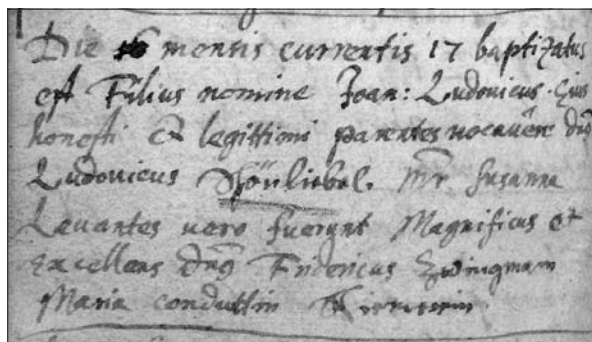 Die 16 mensis currentis 17 baptizatus
est Filius nomine Joan: Ludovicus. Eius
honesti et legittimi parentes vocavere dns
Ludovicus Schönliebel. Mr Susanna
Levantes vero fuerunt Magnificus et
Excellens dns Fridericus Zwingmann
Maria conduttin